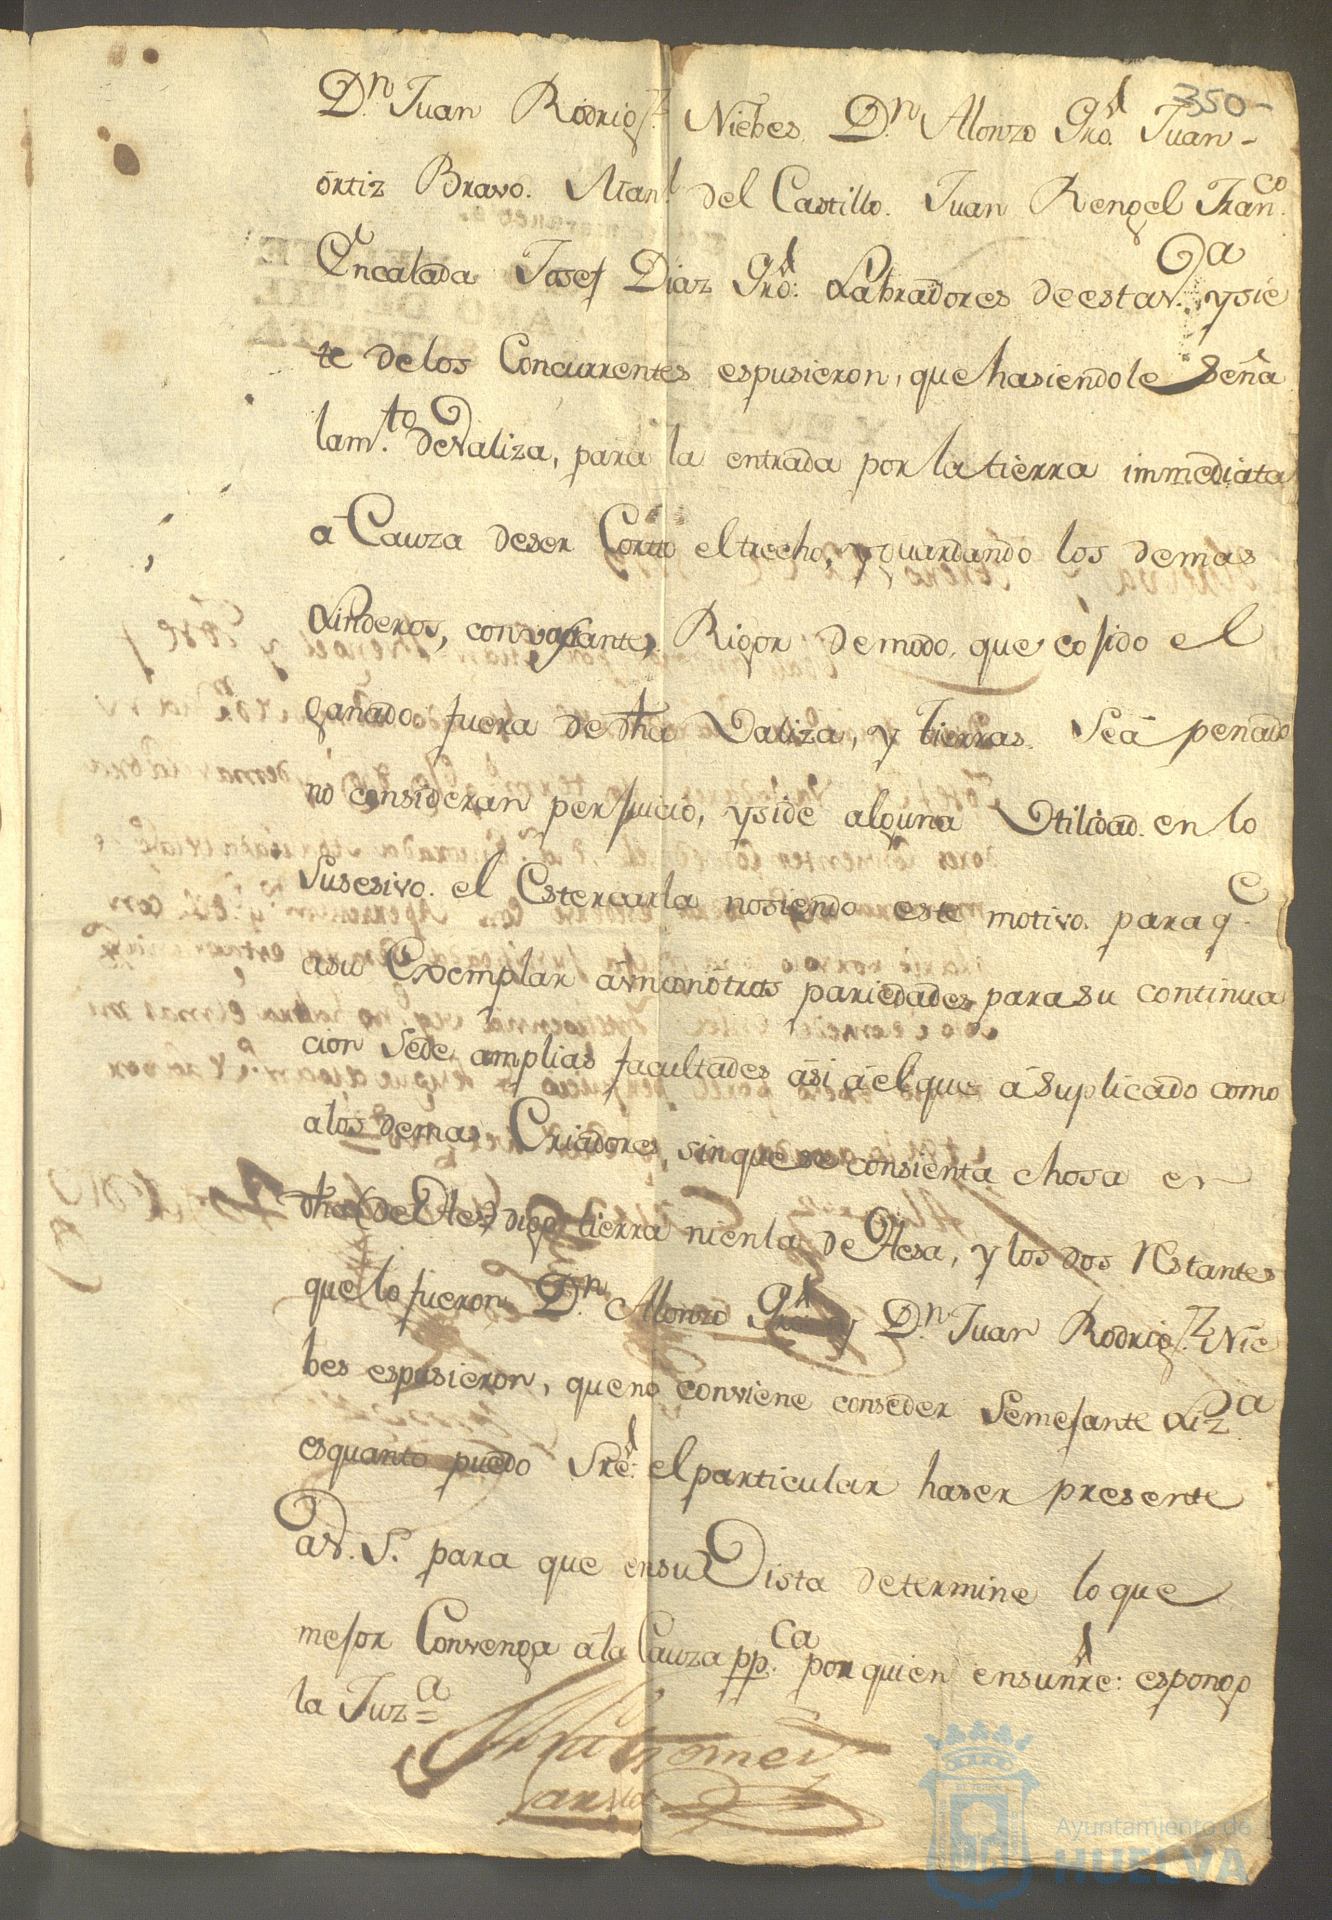 350-
Dn Juan Rodrigz Niebes, Dn Alonzo Gro. Juan-
ortiz Bravo. Manl del Castillo. Juan Rengel Franco.
Encalada Josef Diaz Gro: Labradores de esta va. y sie
te delos Concurrentes espusieron, que hasiendole Seña
lamto. de Valiza, para la entrada por la tierra immediata
a Cauza deser Corto el trecho, y guardando los demas
Linderos, con vastante Rigor demodo. que cojido el
ganado fuera de dha Valiza, y tierras. Seá penado
no consideran perjuicio, y side alguna Utilidad. en lo
Susesivo. el Estercarla nosiendo este motivo. para qe.
asu Exemplar àvnia nôtras pariedades para su continua
cion Sede amplias facultades àsi àelque àsuplicado como
alos demas Criadores, sin que se consienta choza en
dha (deHesa) digo tierra nienla deHesa, y los dos Restantes
que lo fueron Dn Alonzo Gro. y Dn Juan Rodrigz. Nie
bes espusieron, que no conviene conseder Semejante Liza.
esquanto puedo Sre: el particular haser presente
àV. S. para que ensu Vista determine lo que
mejor Convenga àla Cauza ppca. por quien ensu nre: espongo
la Juza =
Bartholome
Garsia
Ayuntamiento de
HUELVA